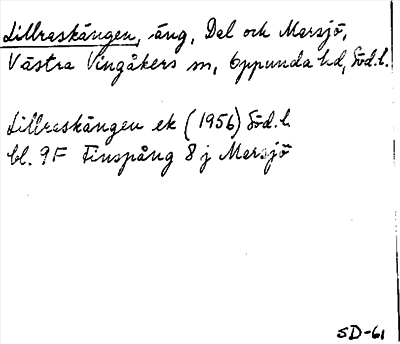 Lillraskängen, äng, Del och Marsjö,
Västra Vingåkers sn, Oppunda hd, Söd.l.
Lillraskängen ek (1956) Söd.l.
bl. 9F Finspång 8 j Marsjö
SD-61